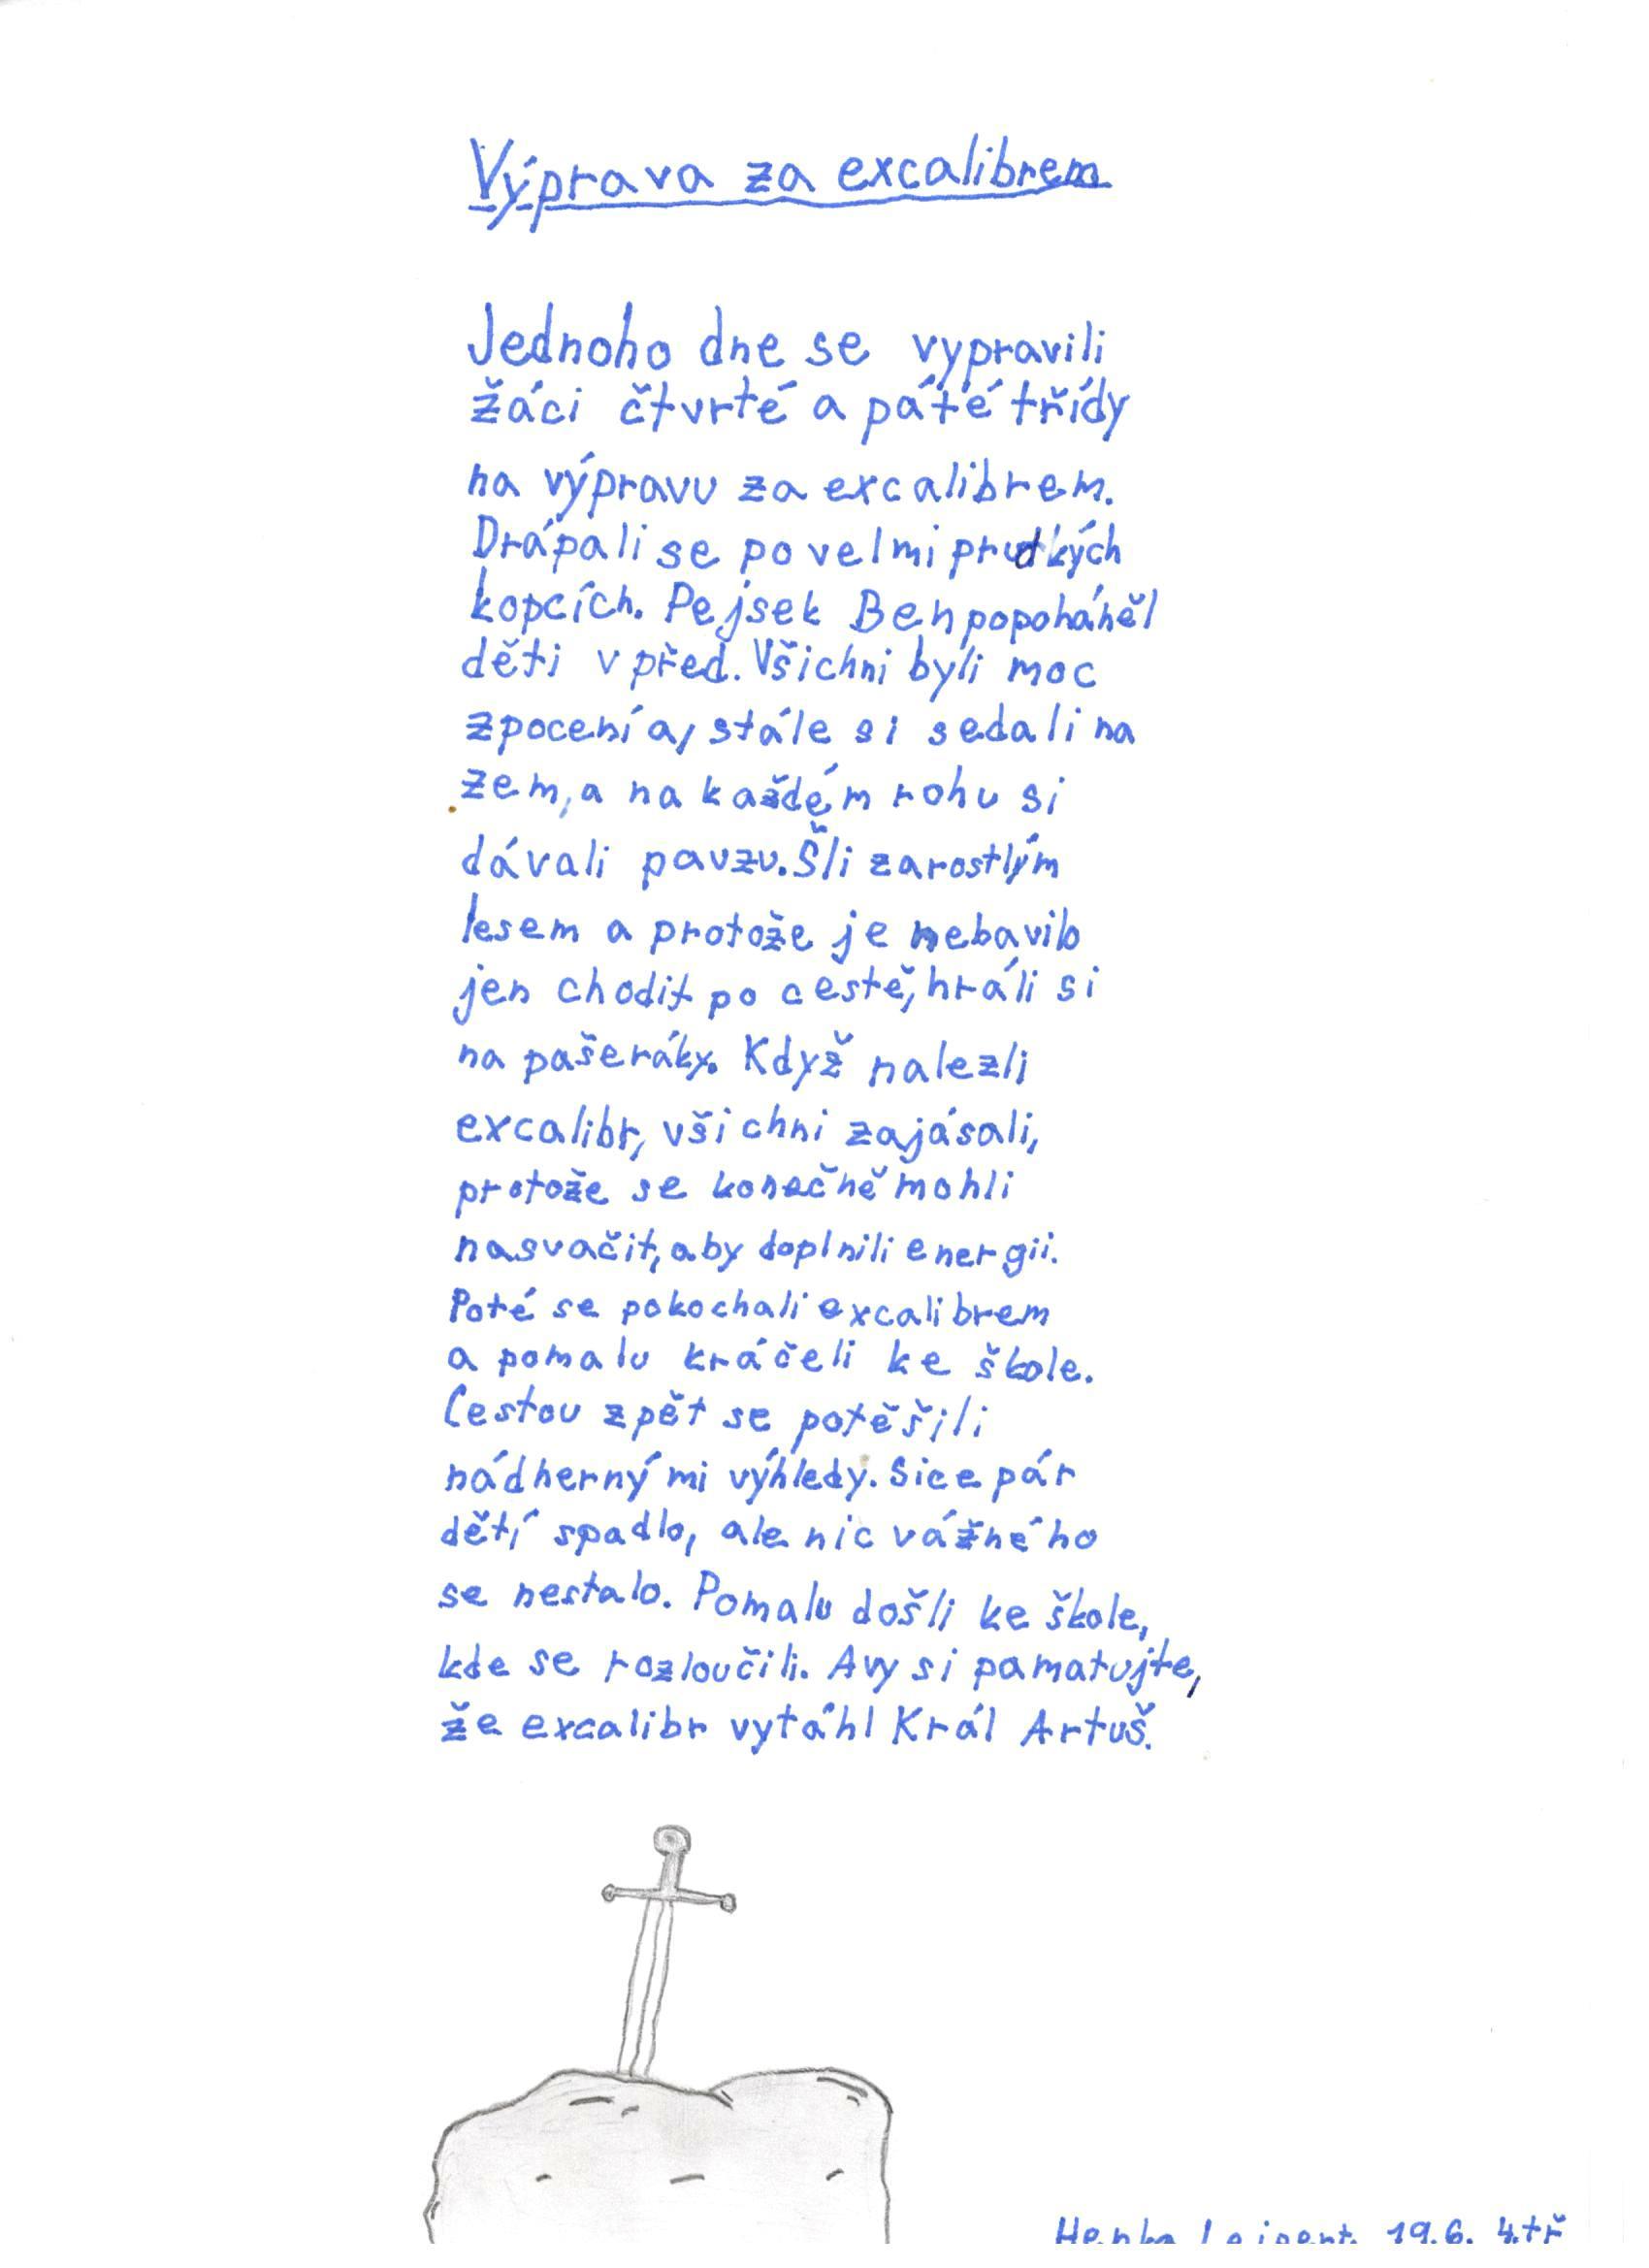 Výprava za excalibrem
Jednoho dne se vypravili
žáci čtvrté a páté třídy
na výpravu za excalibrem.
Drápali se po velmi prudkých
kopcích. Pejsek Ben popoháněl
děti vpřed. Všichni byli moc
zpocení a, stále si sedali na
zem, a na každém rohu si
dávali pauzu. Šli zarostlým
lesem a protože je nebavilo
jen chodit po cestě, hráli si
na pašeráky. Když nalezli
excalibr, všichni zajásali,
protože se konečně mohli
nasvačit, aby doplnili energii.
Poté se pokochali excalibrem
a pomalu kráčeli ke škole.
Cestou zpět se potěšili
nádhernými výhledy. Sice pár
dětí spadlo, ale nic vážného
se nestalo. Pomalu došli ke škole,
kde se rozloučili. A vy si pamatujte,
že excalibr vytáhl Král Artuš.
19.6. 4.tř